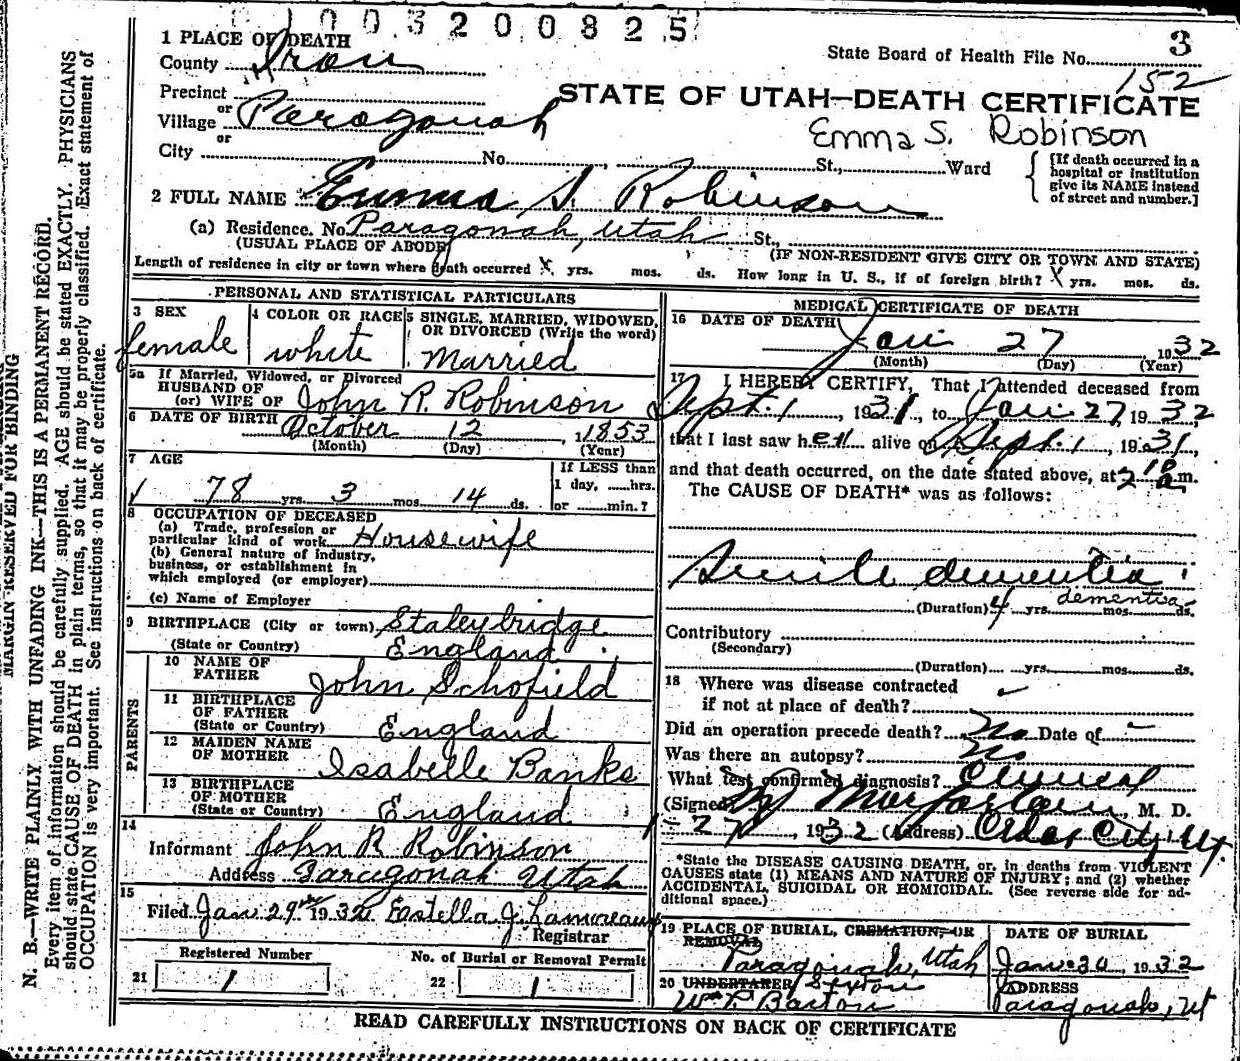 1003200825
3
1 PLACE OF DEATH
State Board of Health File No.
152
County Iron
Precinct
or
STATE OF UTAH—DEATH CERTIFICATE
Village Paragonah
or
Emma S. Robinson
City No. St., Ward
[If death occurred in a hospital or institution give its NAME instead of street and number.]
2 FULL NAME Emma S. Robinson
(a) Residence. No. Paragonah, Utah St.,
(USUAL PLACE OF ABODE) (IF NON-RESIDENT GIVE CITY OR TOWN AND STATE)
Length of residence in city or town where death occurred X yrs. mos. ds. How long in U. S., if of foreign birth? X yrs. mos. ds.
PERSONAL AND STATISTICAL PARTICULARS
3 SEX
female
4 COLOR OR RACE
white
5 SINGLE, MARRIED, WIDOWED, OR DIVORCED (Write the word)
Married
5a If Married, Widowed, or Divorced
HUSBAND OF
(or) WIFE OF John R. Robinson
6 DATE OF BIRTH October 12, 1853
(Month) (Day) (Year)
7 AGE
78 yrs. 3 mos. 14 ds.
If LESS than
1 day, hrs.
or min.?
8 OCCUPATION OF DECEASED
(a) Trade, profession or particular kind of work Housewife
(b) General nature of industry, business, or establishment in which employed (or employer)
(c) Name of Employer
9 BIRTHPLACE (City or town) Staleybridge
(State or Country) England
PARENTS
10 NAME OF FATHER John Schofield
11 BIRTHPLACE OF FATHER
(State or Country) England
12 MAIDEN NAME OF MOTHER Isabelle Banks
13 BIRTHPLACE OF MOTHER
(State or Country) England
14
Informant John R Robinson
Address Paragonah Utah
15
Filed Jan 29th 1932
Registrar
Registered Number
21 1
No. of Burial or Removal Permit
22 1
MEDICAL CERTIFICATE OF DEATH
16 DATE OF DEATH
Jan 27 1932
(Month) (Day) (Year)
17 I HEREBY CERTIFY, That I attended deceased from
Sept. 1, 1931, to Jan 27, 1932
that I last saw her alive on Sept. 1, 1931,
and that death occurred, on the date stated above, at 2 m.
The CAUSE OF DEATH* was as follows:
Senile dementia
dementia
(Duration) 4 yrs. mos. ds.
Contributory
(Secondary)
(Duration) yrs. mos. ds.
18 Where was disease contracted
if not at place of death?
Did an operation precede death? No Date of –
Was there an autopsy? No
What test confirmed diagnosis? Clinical
(Signed) , M. D.
1-27, 1932 (Address) Cedar City, Ut.
*State the DISEASE CAUSING DEATH, or, in deaths from VIOLENT
CAUSES state (1) MEANS AND NATURE OF INJURY; and (2) whether
ACCIDENTAL, SUICIDAL OR HOMICIDAL. (See reverse side for ad-
ditional space.)
19 PLACE OF BURIAL, CREMATION, OR REMOVAL
Paragonah, Utah
DATE OF BURIAL
Jan. 30, 1932
20 UNDERTAKER Sexton
Wm P. Barton
ADDRESS
Paragonah, Ut
READ CAREFULLY INSTRUCTIONS ON BACK OF CERTIFICATE
MARGIN RESERVED FOR BINDING
N. B.—WRITE PLAINLY WITH UNFADING INK—THIS IS A PERMANENT RECORD.
Every item of information should be carefully supplied. AGE should be stated EXACTLY. PHYSICIANS
should state CAUSE OF DEATH in plain terms, so that it may be properly classified. Exact statement of
OCCUPATION is very important. See instructions on back of certificate.